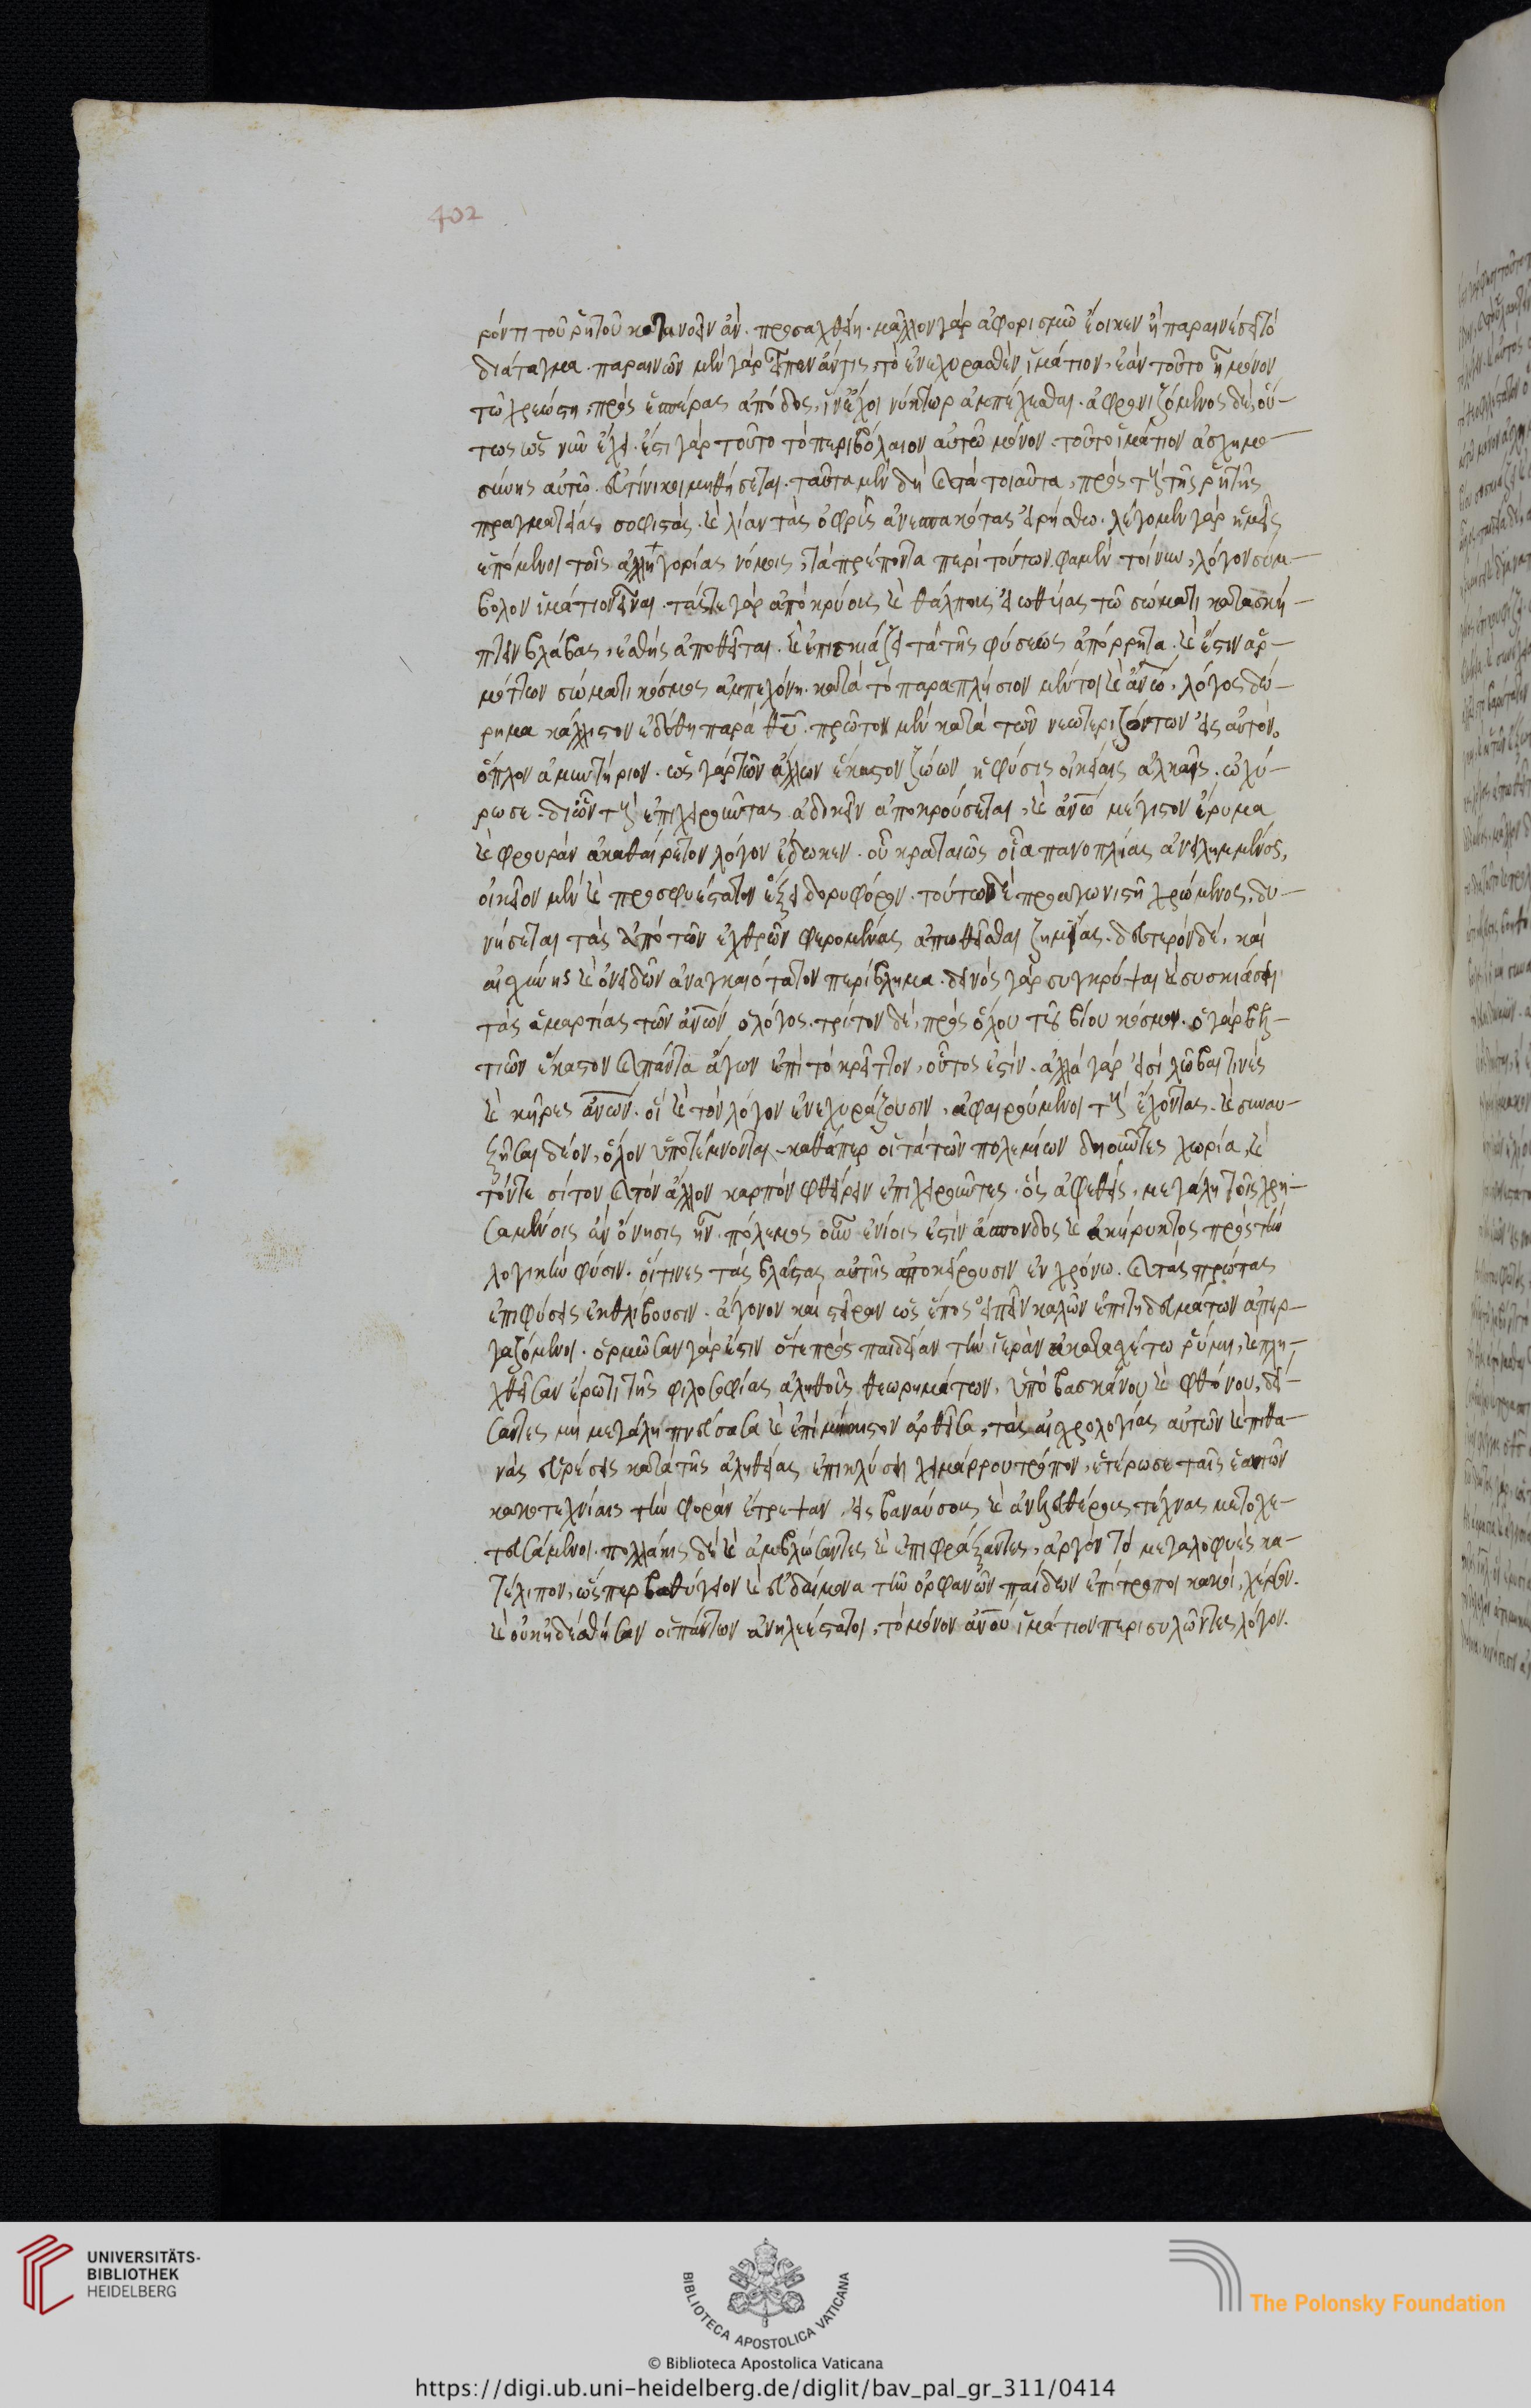 402
ρόντι τοῦ ῥητοῦ κατανοεῖν ἄν. προσαχθείη. μᾶλλον γὰρ ἀφορισμῶ ἔοικεν ἢ παραινέσει τὸ
διάταγμα. παραινῶν μὲν γὰρ εἶπεν ἄν τις, τὸ ἐνεχυρασθὲν ἱμάτιον, ἐὰν τοῦτο ᾖ μόνον
τῶ χρεώστη, πρὸς ἑσπέρας ἀπόδος, ἵν' ἔχοι νύκτωρ ἀμπέχεσθαι. ἀφορι̣ζόμενος δὲ, οὕ-
τως ὡς νῦν ἔχει. ἔστι γὰρ τοῦτο τὸ περιβόλαιον αὐτῶ μόνον. τοῦτο ἱμάτιον ἀσχημο-
σύνης αὐτῶ. ἐν τίνι κοιμηθήσεται. ταῦτα μὲν δὴ καὶ τὰ τοιαῦτα, πρὸς τοὺς τῆς ῥητῆς
πραγματείας σοφιστὰς. καὶ λίαν τὰς ὀφρῦς ἀνεσπακότας εἰρήσθω. λέγομεν γὰρ ἡμεῖς
ἑπόμενοι τοῖς ἀλληγορίας νόμοις, τὰ πρέποντα περὶ τούτων. φαμὲν τοίνυν, λόγου σύμ-
βολον ἱμάτιον εἶναι. τάς τε γὰρ ἀπὸ κρύους καὶ θάλπους εἰωθυίας τῶ σώματι κατασκή-
πτειν βλάβας, ἐσθὴς ἀποθεῖται. καὶ ἐπισκιάζει τὰ τῆς φύσεως ἀπόρρητα. καὶ ἔστιν ἁρ-
μόττων σώματι κόσμος ἀμπεχόνη. κατὰ τὸ παραπλήσιον μέντοι καὶ ἀνω, λόγος δώ-
ρημα κάλλιστον ἐδόθη παρὰ θυ. πρῶτον μὲν κατὰ τῶν νεωτεριζόντων εἰς αὐτὸν,
ὅπλον ἀμυντήριον. ὡς γὰρ τῶν ἄλλων ἕκαστον ζώων ἡ φύσις οἰκείαις ἀλκαῖς. ὠχύ-
ρωσε. δι' ὧν τοὺς ἐπιχειροῦντας ἀδικεῖν ἀποκρούσεται, καὶ ἀνω μέγιστον ἔρυμα
καὶ φρουρὰν ἀκαθαίρετον λόγον ἔδωκεν. οὗ κραταιῶς οἷα πανοπλίας ἀνειλημμένος,
οἰκεῖον μὲν καὶ προσφυέστατον ἕξει δορυφόρον. τούτω δὲ προαγωνιστῆ χρώμενος, δυ-
νήσεται τὰς ἀπὸ τῶν ἐχθρῶν φερομένας ἀπωθεῖσθαι ζημίας. δεύτερον δὲ, καὶ
αἰσχύνης καὶ ὀνειδῶν ἀναγκαιότατον περίβλημα. δεινὸς γὰρ συγκρύψαι καὶ συσκιάσαι
τὰς ἁμαρτίας τῶν ἀνων ὁ λόγος. τρίτον δὲ, πρὸς ὅλου τοῦ βίου κόσμον. ὁ γὰρ βελ-
τιῶν ἕκαστον καὶ πάντα ἄγων ἐπὶ τὸ κρεῖττον, οὗτος ἐστίν. ἀλλὰ γὰρ εἰσὶ λῶβαι τινὲς
καὶ κῆρες ἀνων. οἳ καὶ τὸν λόγον ἐνεχυράζουσιν, ἀφαιρούμενοι τοὺς ἔχοντας. καὶ συναυ-
ξῆσαι δέον, ὅλον ὑποτέμνονται. καθάπερ οἱ τὰ τῶν πολεμίων δῃοῦντες χωρία, καὶ
τόν τε σῖτον καὶ τὸν ἄλλον καρπὸν φθείρειν ἐπιχειροῦντες. ὃς ἀφεθεὶς, μεγάλη τοῖς χρη-
σαμένοις ἂν ὄνησις ἦν. πόλεμος οὖν ἐνίοις ἐστὶν ἄσπονδος καὶ ἀκήρυκτος πρὸς τὴν
λογικὴν φύσιν. οἵτινες τὰς βλάστας αὐτῆς ἀποκείρουσιν ἐν χρόνω. καὶ τὰς πρώτας
ἐπιφύσεις ἐκθλίβουσιν. ἄγονον καὶ στεῖραν ὡς ἔπος εἰπεῖν καλῶν ἐπιτηδευμάτων ἀπερ-
γαζόμενοι. ὁρμῶσαν γὰρ ἔστιν ὅτε πρὸς παιδείαν τὴν ἱερὰν ἀκατασχέτω ῥύμη, καὶ πλη-
χθεῖσαν ἔρωτι τῆς φιλοσοφίας ἀληθοῦς θεωρημάτων, ὑπὸ βασκάνου καὶ φθόνου, δεί-
σαντες μὴ μεγάλη πνεύσασα καὶ ἐπὶ μήκιστον ἀρθεῖσα, τὰς αἰσχρολογίας αὐτῶν καὶ πιθα-
νὰς εὑρέσεις κατὰ τῆς ἀληθείας ἐπικλύσῃ χειμάρρου τρόπον, ἑτέρωσε ταῖς ἑαυτῶν
κακοτεχνίαις τὴν φορὰν ἔτρεψαν, εἰς βαναύσους καὶ ἀνελευθέρους τέχνας μετοχε-
τευσάμενοι. πολλάκις δὲ καὶ ἀμβλώσαντες καὶ ἐπιφράξαντες, ἀργὸν τὸ μεγαλοφυὲς κα-
τέλιπον, ὥσπερ βαθύγειον καὶ εὐδαίμονα τῶν ὀρφανῶν παίδων ἐπίτροποι κακοὶ, χέρσον.
καὶ οὐκ ᾐδέσθησαν οἱ πάντων ἀνηλεέστατοι, τὸ μόνον ἀνου ἱμάτιον περισυλῶντες λόγον.
UNIVERSITÄTS-
BIBLIOTHEK
HEIDELBERG
BIBLIOTECA APOSTOLICA VATICANA
The Polonsky Foundation
© Biblioteca Apostolica Vaticana
https://digi.ub.uni-heidelberg.de/diglit/bav_pal_gr_311/0414